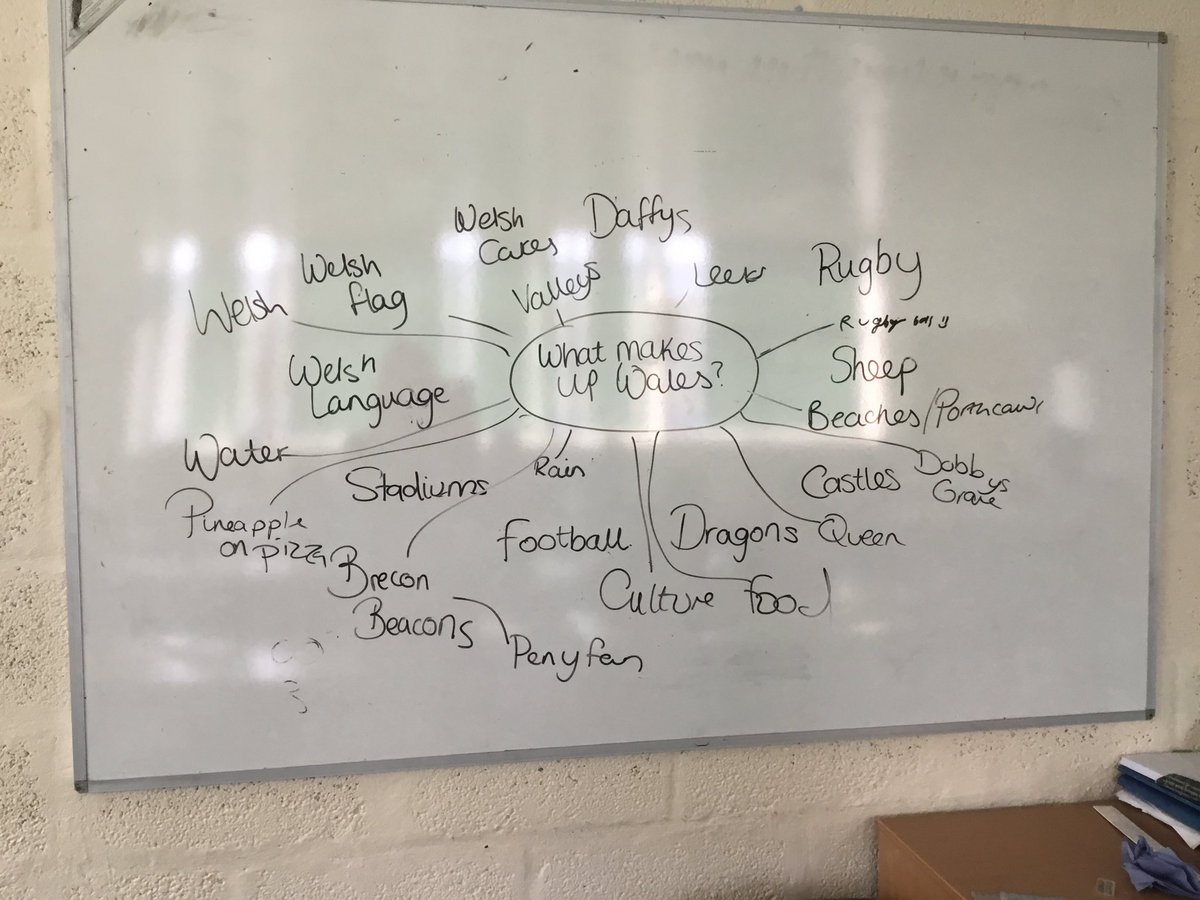 What makes
up Wales?
Welsh
Cakes
Daffys
Welsh
flag
Valleys
Leeks
Rugby
Welsh
Rugby
Sheep
Welsh
Language
Beaches/Porthcawl
Water
Stadiums
Rain
Castles
Dobbys
Grave
Pineapple
on pizza
Football
Dragons
Queen
Brecon
Beacons
Culture
Food
Penyfan